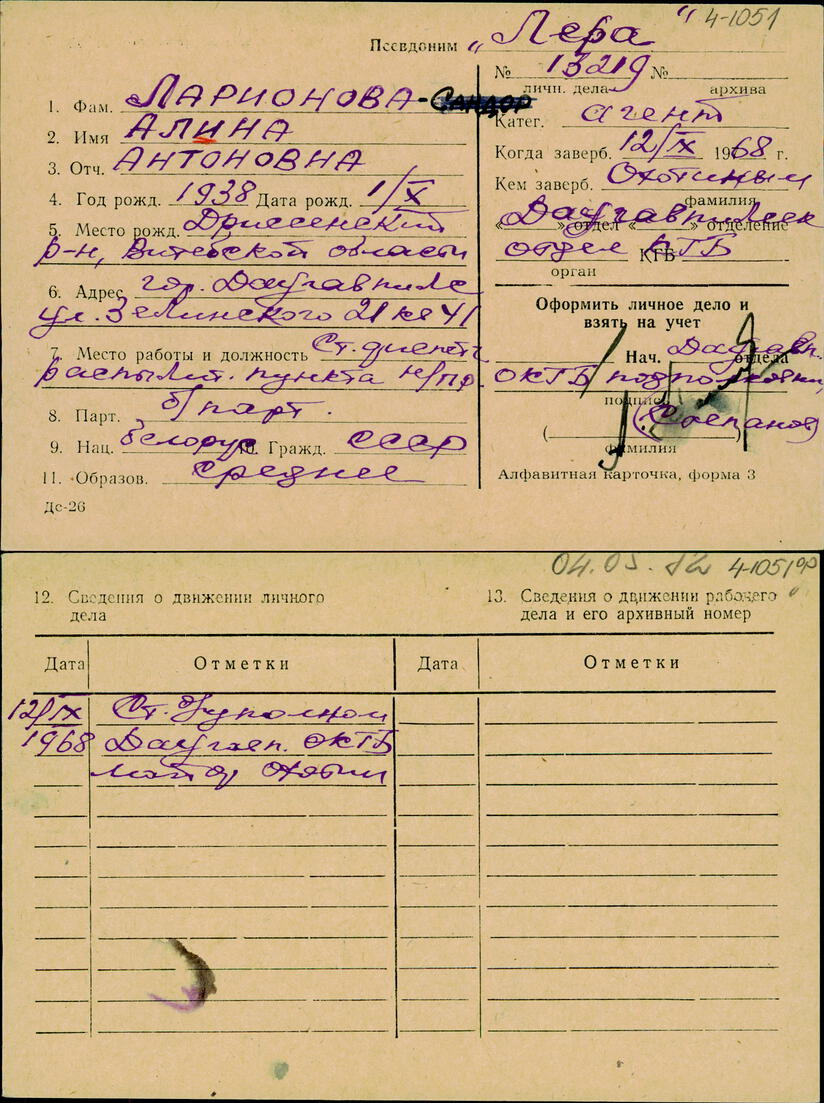 Псевдоним „Лера“ 4-1051
№ 13219 №
личн. дела архива
1. Фам. ЛАРИОНОВА-САНДОР
Катег. агент
2. Имя АЛИНА
Когда заверб. 12/IX 1968 г.
3. Отч. АНТОНОВНА
Кем заверб. Охотиным
фамилия
4. Год рожд. 1938 Дата рожд. 1/X
« » отдел « » отделение
Даугавпилск
5. Место рожд. Дриссенский
р-н, Витебской области
отдел КГБ КГБ
орган
6. Адрес гор. Даугавпилс
ул. Зелинского 21 кв 41
Оформить личное дело и
взять на учет
7. Место работы и должность Ст. диспетч
распылит. пункта н/пр.
Нач. отдела Даугавп.
ОКГБ подполковник
подпись
(Степанов)
фамилия
8. Парт. б/парт.
9. Нац. белорус 10. Гражд. СССР
11. Образов. среднее
Алфавитная карточка, форма 3
Дс-26
04.05. 4-1051
12. Сведения о движении личного
дела
13. Сведения о движении рабочего
дела и его архивный номер
Дата Отметки Дата Отметки
12/IX Ст. уполном
1968 Даугавп. ОКГБ
майор Охотин